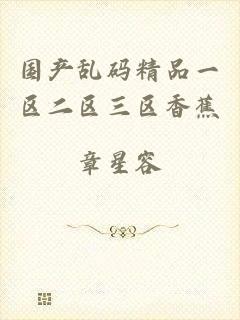 国产乱码精品一
区二区三区香蕉
章星容